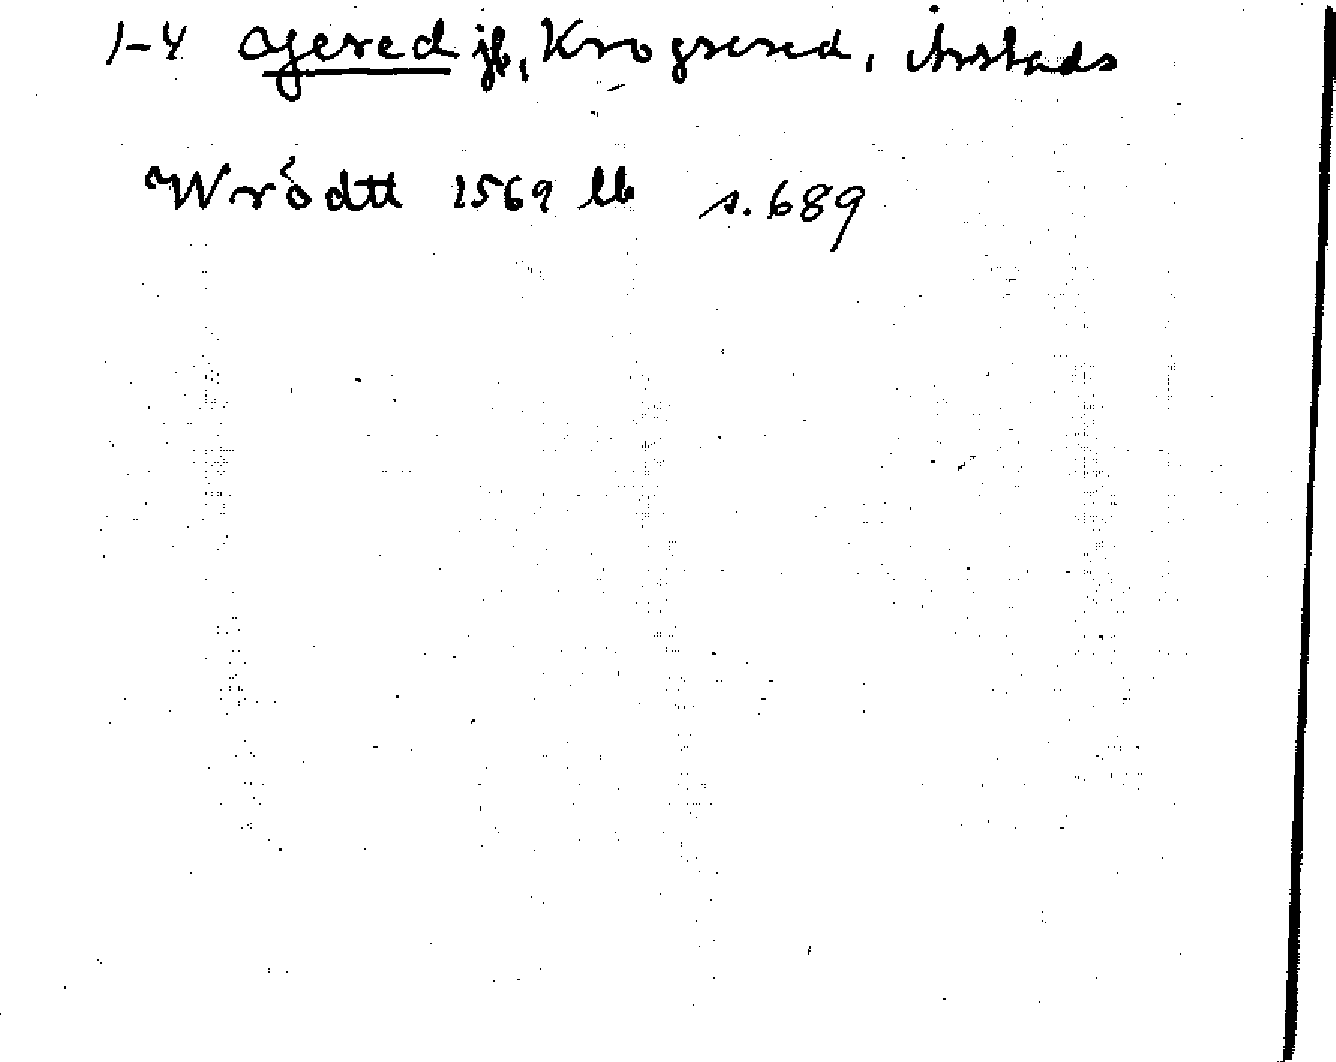 1-4 Ogered jb, Krogsered, Årstads
Wrödtt 1569 lb s. 689